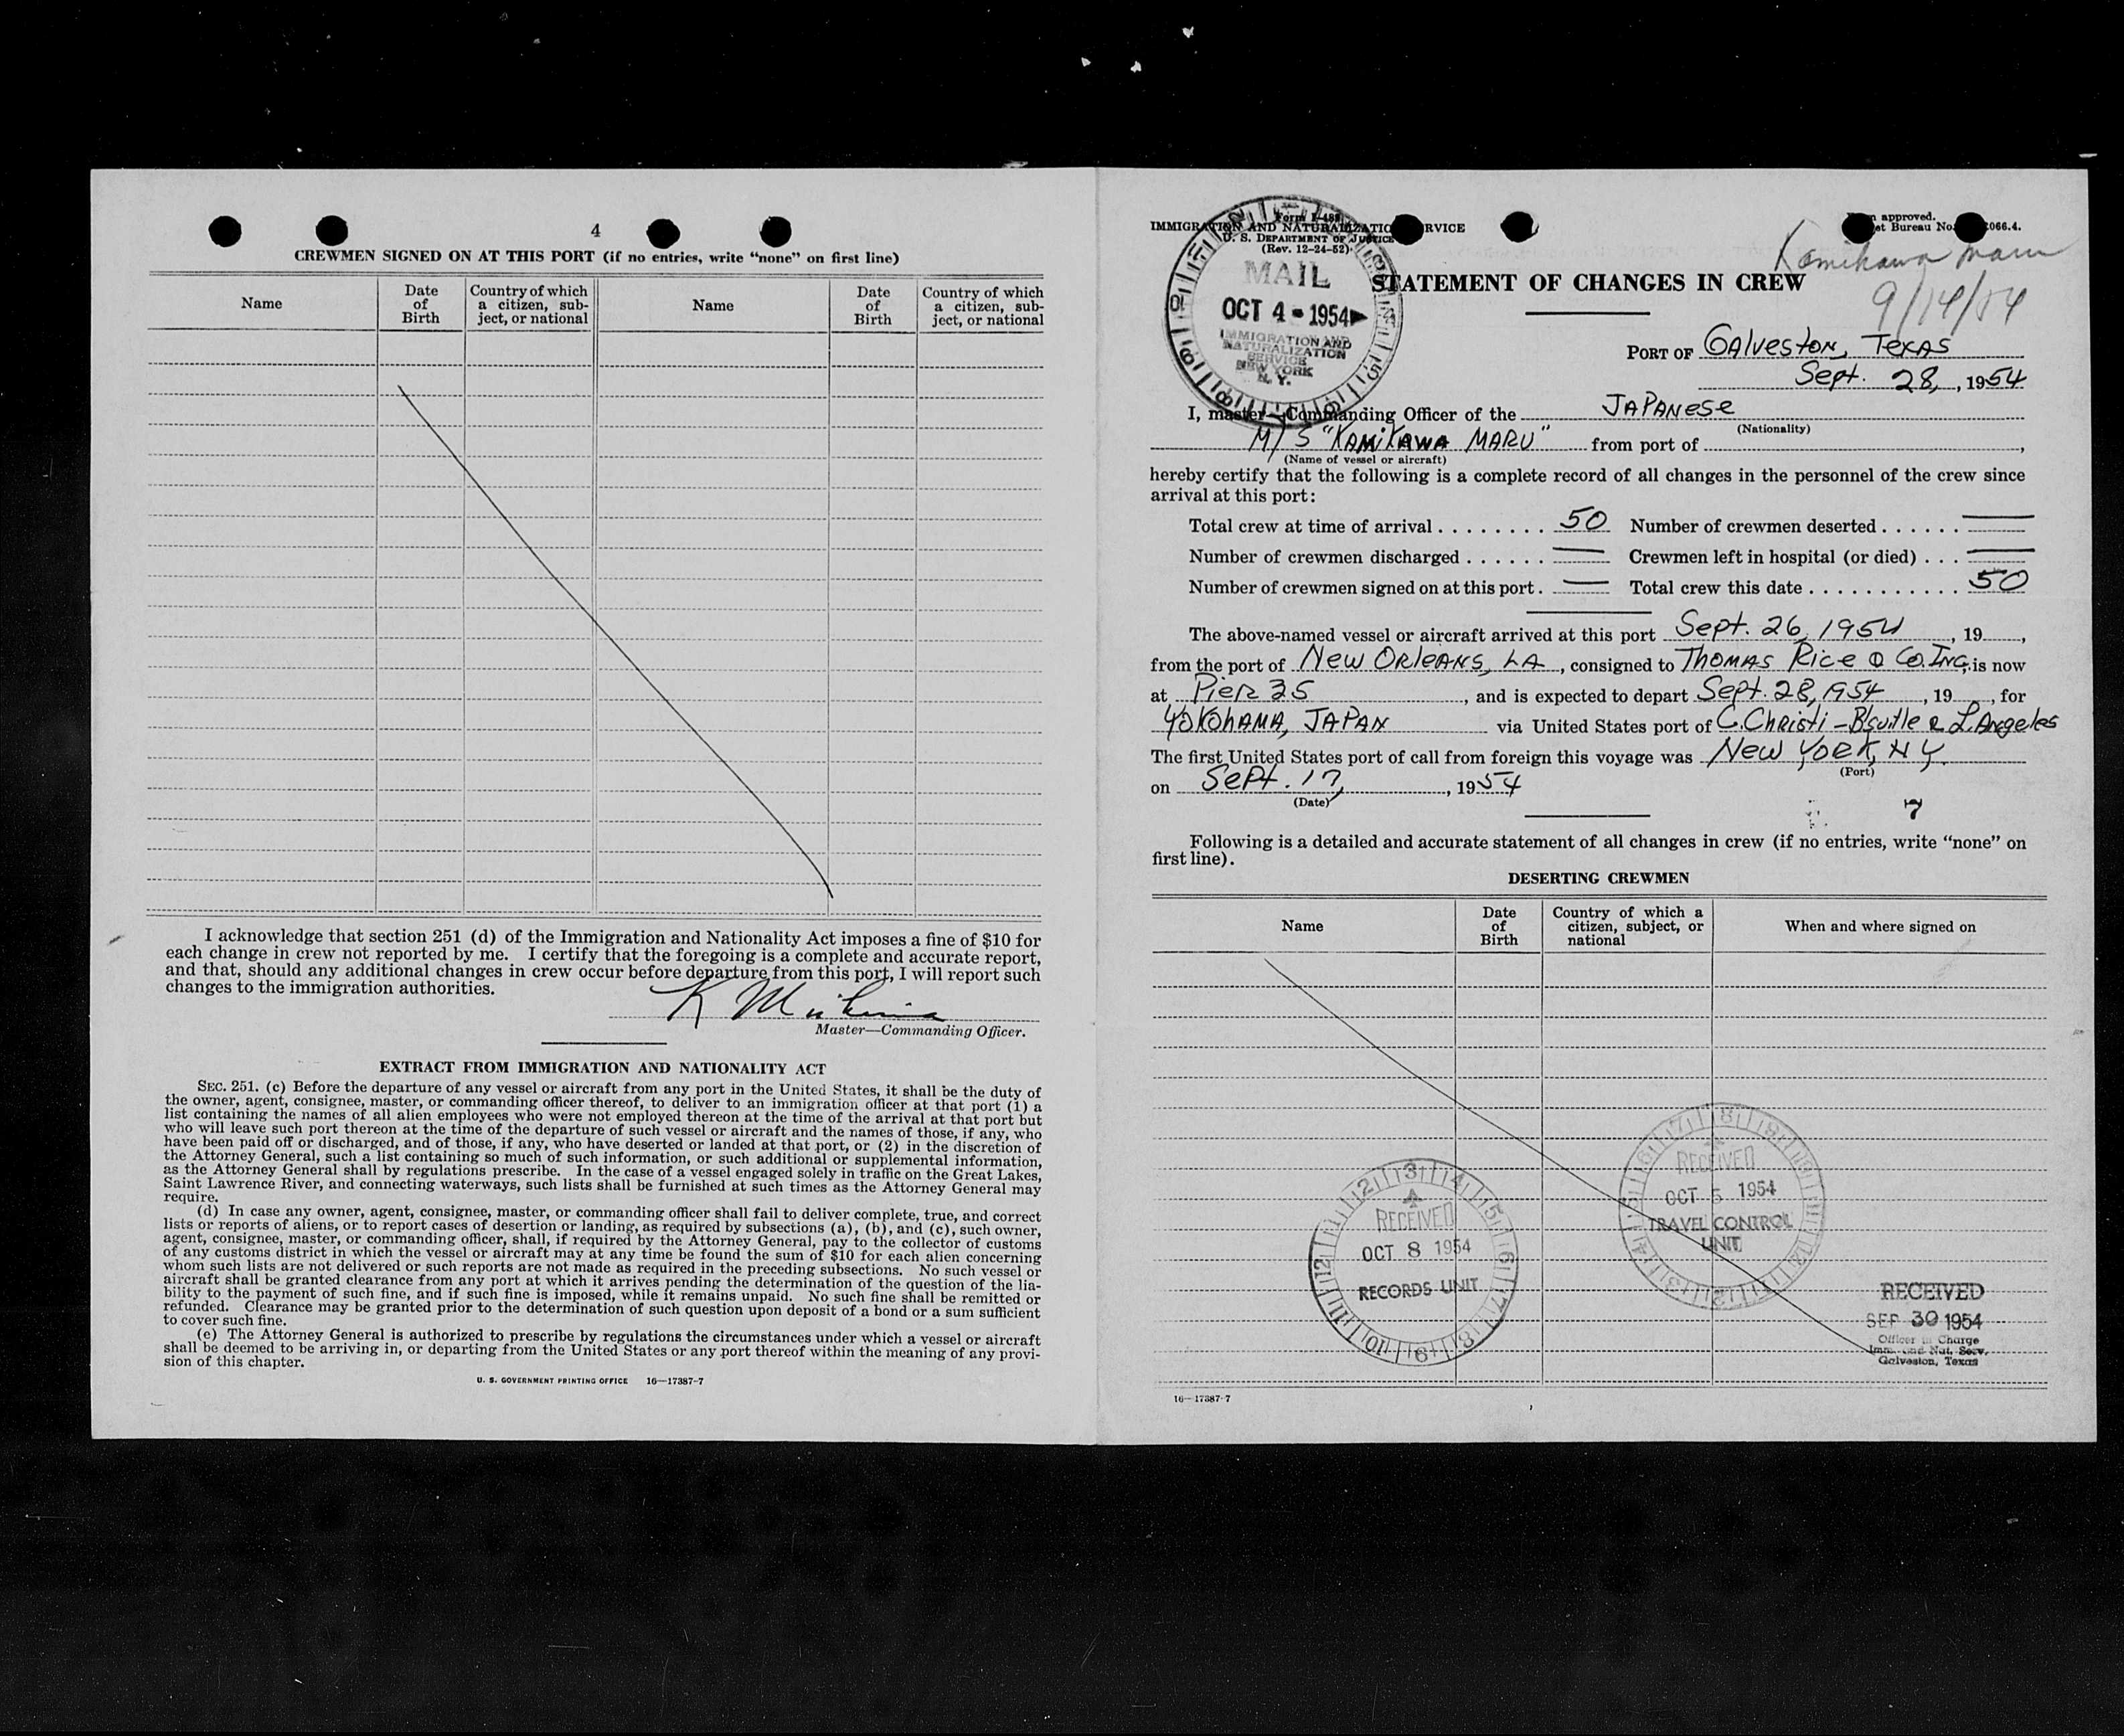 4
CREWMEN SIGNED ON AT THIS PORT (if no entries, write "none" on first line)
Name
Date of Birth
Country of which a citizen, sub-ject, or national
Name
Date of Birth
Country of which a citizen, sub-ject, or national
I acknowledge that section 251 (d) of the Immigration and Nationality Act imposes a fine of $10 for
each change in crew not reported by me. I certify that the foregoing is a complete and accurate report,
and that, should any additional changes in crew occur before departure from this port, I will report such
changes to the immigration authorities.
K
Master—Commanding Officer.
EXTRACT FROM IMMIGRATION AND NATIONALITY ACT
SEC. 251. (c) Before the departure of any vessel or aircraft from any port in the United States, it shall be the duty of
the owner, agent, consignee, master, or commanding officer thereof, to deliver to an immigration officer at that port (1) a
list containing the names of all alien employees who were not employed thereon at the time of the arrival at that port but
who will leave such port thereon at the time of the departure of such vessel or aircraft and the names of those, if any, who
have been paid off or discharged, and of those, if any, who have deserted or landed at that port, or (2) in the discretion of
the Attorney General, such a list containing so much of such information, or such additional or supplemental information,
as the Attorney General shall by regulations prescribe. In the case of a vessel engaged solely in traffic on the Great Lakes,
Saint Lawrence River, and connecting waterways, such lists shall be furnished at such times as the Attorney General may
require.
(d) In case any owner, agent, consignee, master, or commanding officer shall fail to deliver complete, true, and correct
lists or reports of aliens, or to report cases of desertion or landing, as required by subsections (a), (b), and (c), such owner,
agent, consignee, master, or commanding officer, shall, if required by the Attorney General, pay to the collector of customs
of any customs district in which the vessel or aircraft may at any time be found the sum of $10 for each alien concerning
whom such lists are not delivered or such reports are not made as required in the preceding subsections. No such vessel or
aircraft shall be granted clearance from any port at which it arrives pending the determination of the question of the lia-
bility to the payment of such fine, and if such fine is imposed, while it remains unpaid. No such fine shall be remitted or
refunded. Clearance may be granted prior to the determination of such question upon deposit of a bond or a sum sufficient
to cover such fine.
(e) The Attorney General is authorized to prescribe by regulations the circumstances under which a vessel or aircraft
shall be deemed to be arriving in, or departing from the United States or any port thereof within the meaning of any provi-
sion of this chapter.
U. S. GOVERNMENT PRINTING OFFICE 16—17387-7
Form I-489
IMMIGRATION AND NATURALIZATION SERVICE
U. S. DEPARTMENT OF JUSTICE
(Rev. 12-24-52)
approved.
et Bureau No. 066.4.
MAIL
OCT 4 - 1954
IMMIGRATION AND
NATURALIZATION
SERVICE
NEW YORK
N. Y.
Kamikawa Maru
9/14/54
STATEMENT OF CHANGES IN CREW
PORT OF Galveston, Texas
Sept. 28, 1954
I, master—Commanding Officer of the Japanese
(Nationality)
M/S "KAMIKAWA MARU" from port of ,
(Name of vessel or aircraft)
hereby certify that the following is a complete record of all changes in the personnel of the crew since
arrival at this port:
Total crew at time of arrival . . . . . . . . 50 Number of crewmen deserted . . . . . . —
Number of crewmen discharged . . . . . . — Crewmen left in hospital (or died) . . . —
Number of crewmen signed on at this port . — Total crew this date . . . . . . . . . . . 50
The above-named vessel or aircraft arrived at this port Sept. 26, 1954, 19 ,
from the port of New Orleans, LA, consigned to Thomas Rice & Co. Inc, is now
at Pier 35, and is expected to depart Sept. 28, 1954, 19 , for
Yokohama, Japan via United States port of C. Christi - B'sville & L. Angeles
The first United States port of call from foreign this voyage was New York, N.Y.
(Port)
on Sept. 17, , 1954
(Date)
7
Following is a detailed and accurate statement of all changes in crew (if no entries, write "none" on
first line).
DESERTING CREWMEN
Name
Date of Birth
Country of which a citizen, subject, or national
When and where signed on
RECEIVED
OCT 5 1954
TRAVEL CONTROL
UNIT
RECEIVED
OCT 8 1954
RECORDS UNIT
RECEIVED
SEP 30 1954
Officer in Charge
Imm. and Nat. Serv.
Galveston, Texas
16—17387-7